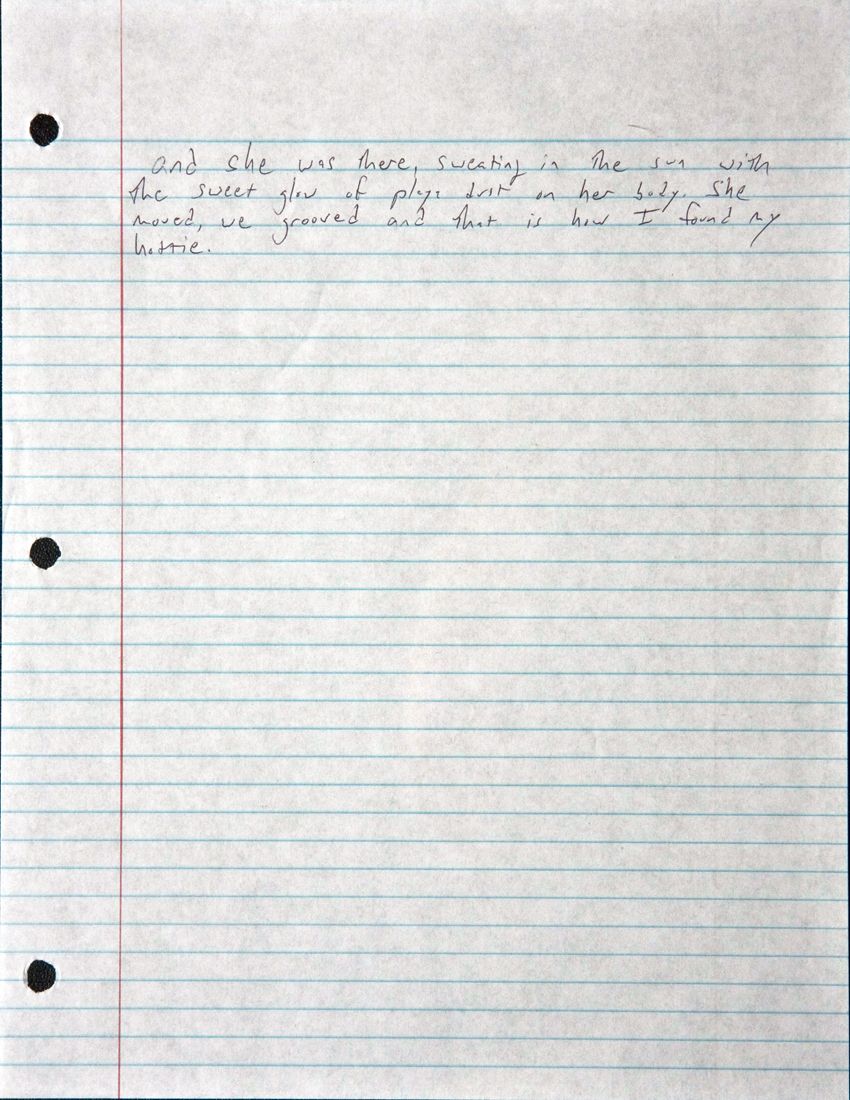 and she was there, sweating in the sun with
the sweet glow of playa dust on her body. She
moved, we grooved and that is how I found my
hottie.